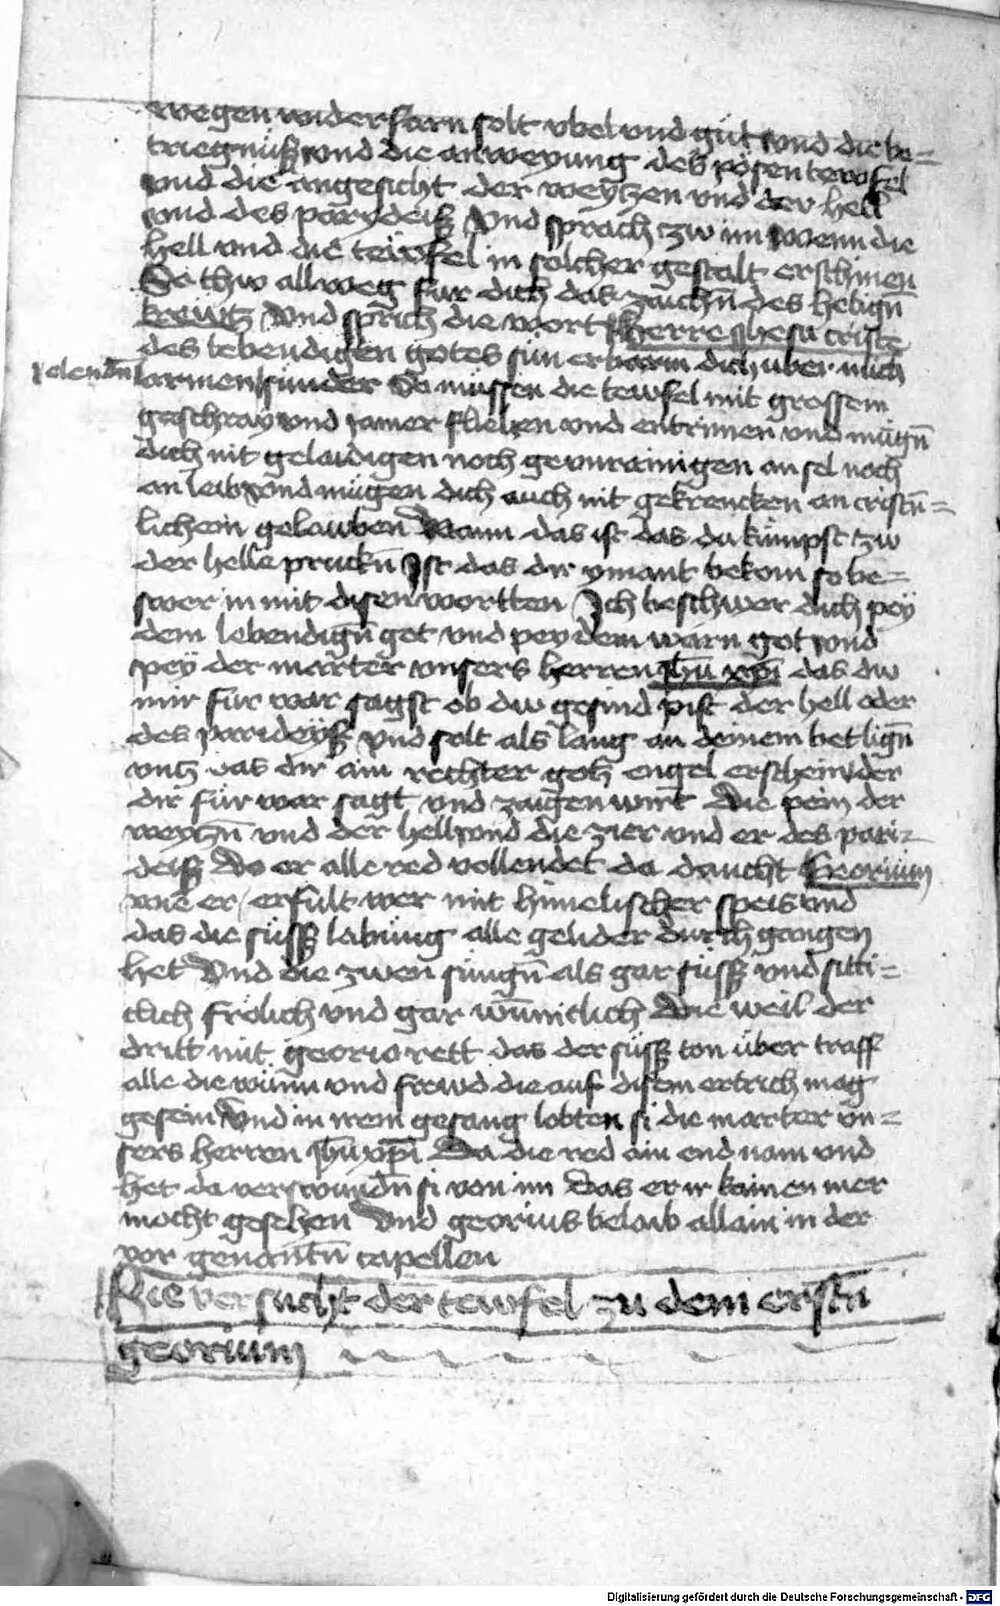 wegen widerfarn solt vbel vnd gut vnd die be=
triegnüß vnd die anweyung des pösen tewfel
vnd die angesicht der weytzen vnd der hell
vnd des parydeiß Vnd sprach zw im Wenn die
hell vnd die tewfel in solcher gestalt erschinen
So thw allweg für dich das zaichn̄ des heilign̄
krewtz Vnd sprich die wort herre ihesu criste
des lebendigen gotes sun erbarm dich uber mich
ꝛelendn̄ armen sünder So müssen die tewfel mit grossem
geschray vnd jamer fliehen vnd entrinnen vnd mügn̄
dich nit gelaidigen noch gevnrainigen an sel noch
an leib vnd mügen dich auch nit gekrencken an cristn̄=
lichem gelawben Wann das ist das du kumpst tzw
der helle pruckn̄ Ist das dir ymant bekom so be=
swer in mit disen wortten Ich beschwer dich pey
dem lebendign̄ got vnd pey dem warn got vnd
pey der marter vnsers herren ihū xp̄i das dw
mir für war sagst ob dw gesind pist der hell oder
des parideyß vnd solt als lang an deinem bet lign̄
vntz das dir ain rechter gotz engel erscheint der
dir für war sagt vnd zaigen wirt Die pein der
weytzn̄ vnd der hell vnd die zier vnd er des pari=
deiß Do er alle red vollendet da daucht Georium
wie er erfült wer mit himelischer speis vnd
das die süssß labung alle gelider durch gangen
het Vnd die zwen sungn̄ als gar süssß vnd sitti=
clich frölich vnd gar wūnnitlich Die weil der
dritt mit georio rett das der süssß ton über traff
alle die wünn vnd frewd die auf disem ertrich mag
gesein Vnd in irem gesang lobten si die marter vn=
sers herren ihū xp̄i Da die red ain end nam vnd
het da verswundn̄ si von im Das er ir kainen mer
mocht gesehen Vnd georius belaib allain in der
vor genantn̄ capellen
Hie versucht der tewfel zu dem erstn̄
georium
Digitalisierung gefördert durch die Deutsche Forschungsgemeinschaft - DFG